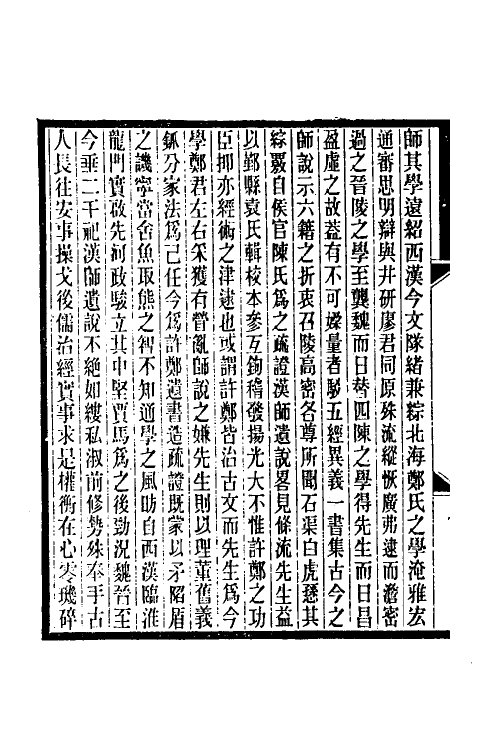 師其學遠紹西漢今文隊緒兼綜北海鄭氏之學淹雅宏
通審思明辯與井研廖君同原殊流縱恢廣弗逮而澹密
過之晉陵之學至龔魏而日替四陳之學得先生而日昌
盈虛之故蓋有不可㮣量者駮五經異義一書集古今之
師說示六籍之折衷召陵高密各尊所聞石渠白虎懸其
綜覈自侯官陳氏爲之疏證漢師遺說畧見條流先生益
以鄞縣袁氏輯校本參互鉤稽發揚光大不惟許鄭之功
臣抑亦經術之津逮也或謂許鄭皆治古文而先生爲今
學鄭君左右采獲有瞀亂師說之嫌先生則以理董舊義
釽分家法爲己任今爲許鄭遺書造疏證既蒙以矛陷盾
之譏寧當舍魚取熊之智不知通學之風昉自西漢臨淮
龍門實啟先河政駿立其中堅賈馬爲之後勁況魏晉至
今垂二千祀漢師遺說不絕如縷私淑前修勢殊奉手古
人長往安事操戈後儒治經實事求是權衡在心零璣碎